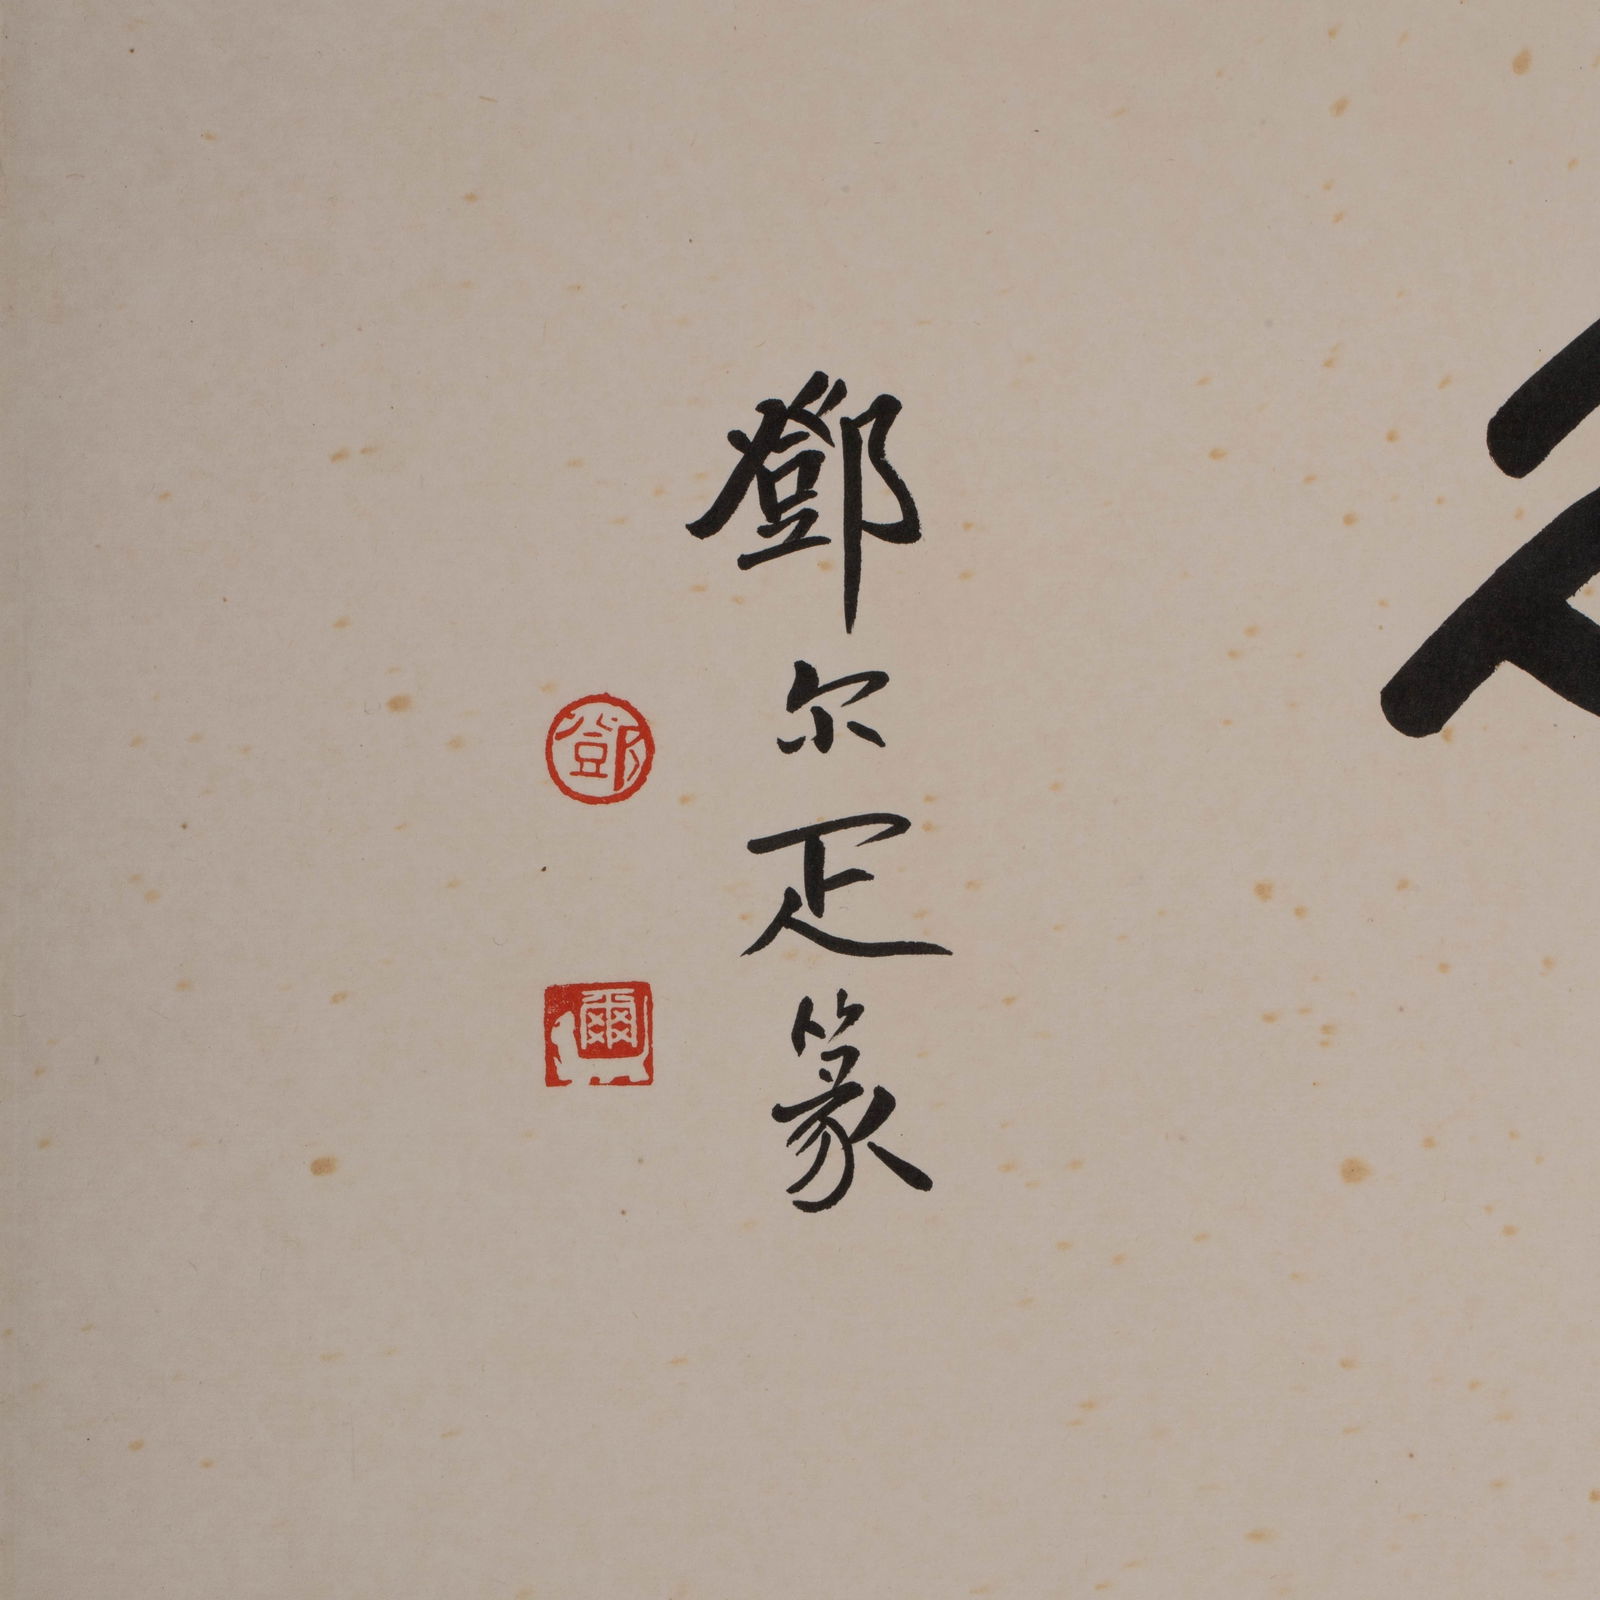 鄧尔疋篆
鄧
爾